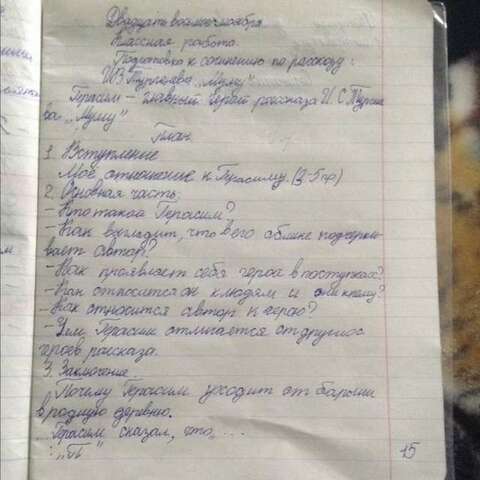 Двадцать восьмое ноября
Классная работа.
Подготовка к сочинению по рассказу:
И.С Тургенева „Муму"
Герасим – главный герой рассказа И.С Турге
ва „Муму"
План.
1. Вступление
Моё отношение к Герасиму. (3-5 пр)
2. Основная часть.
- Кто такой Герасим?
- Как выглядит, что в его облике подчерки-
вает автор?
- Как проявляет себя герой в поступках?
- Как относится он к людям и они к нему?
- Как относится автор к герою?
- Чем Герасим отличается от других
героев рассказа.
3. Заключение.
Почему Герасим уходит от барыни
в родную деревню.
Герасим сказал, что, ....
: „Пь"
15